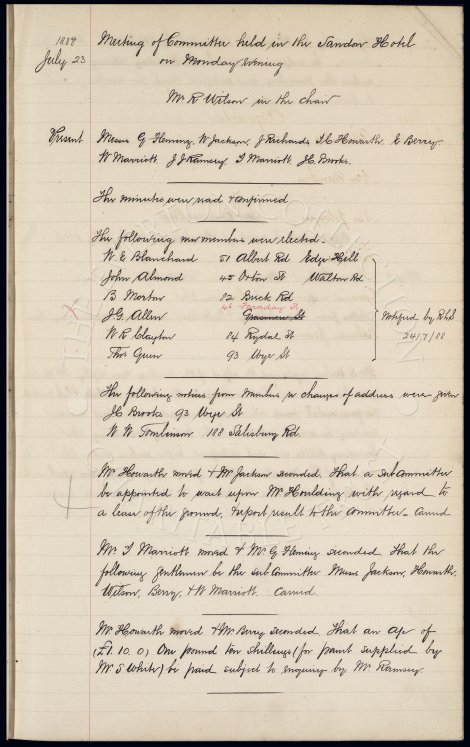 1888
July 23
Meeting of Committee held in the Sandon Hotel
on Monday evening
Mr R Wilson in the chair
Present
Messrs G Fleming, W Jackson, J Richards, T C Howarth, E Berry
W Marriott, J J Ramsey, T Marriott, J C Brooks.
The minutes were read & confirmed
The following new members were elected
W E Blanchard 51 Albert Rd Edge Hill
John Almond 45 Orton St Walton Rd
B Morton 82 Buck Rd
46 Faraday St
J.G. Allen
W R Clayton 84 Rydal St
Thos Green 93 Wye St
Notified by
24/7/88
The following notices from Members re changes of address were given
J C Brooks 93 Wye St
W N Tomlinson 188 Salisbury Rd.
Mr Howarth moved & Mr Jackson seconded. That a sub Committee
be appointed to wait upon Mr Houlding with regard to
a lease of the ground, & report result to this Committee - Carried
Mr T Marriott moved & Mr G Fleming seconded that the
following gentlemen be the sub Committee Messrs Jackson, Howarth,
Wilson, Berry, & W Marriott. Carried.
Mr Howarth moved & Mr Berry seconded That an a/c of
(£1. 10. 0) One pound ten shillings (for paint supplied by
Mr S White) be paid subject to enquiry by Mr Ramsey.